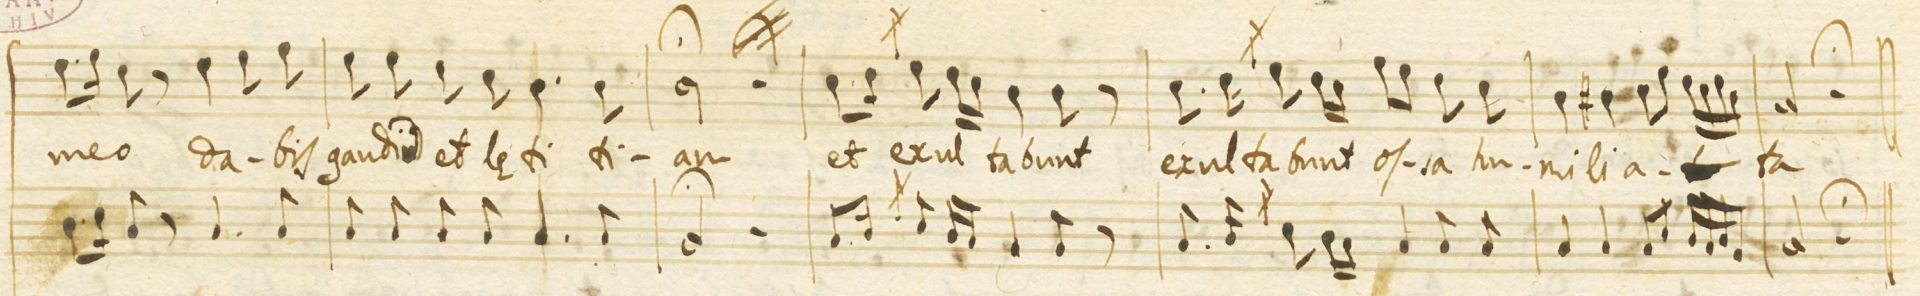 meo da-bis gaudiū et lęti ti-am et exul tabunt exultabunt os-sa hu-mili a-ta